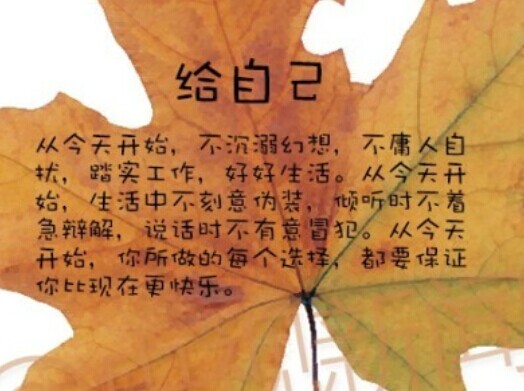 给自己
从今天开始，不沉溺幻想，不庸人自
扰，踏实工作，好好生活。从今天开
始，生活中不刻意伪装，倾听时不着
急辩解，说话时不有意冒犯。从今天
开始，你所做的每个选择，都要保证
你比现在更快乐。